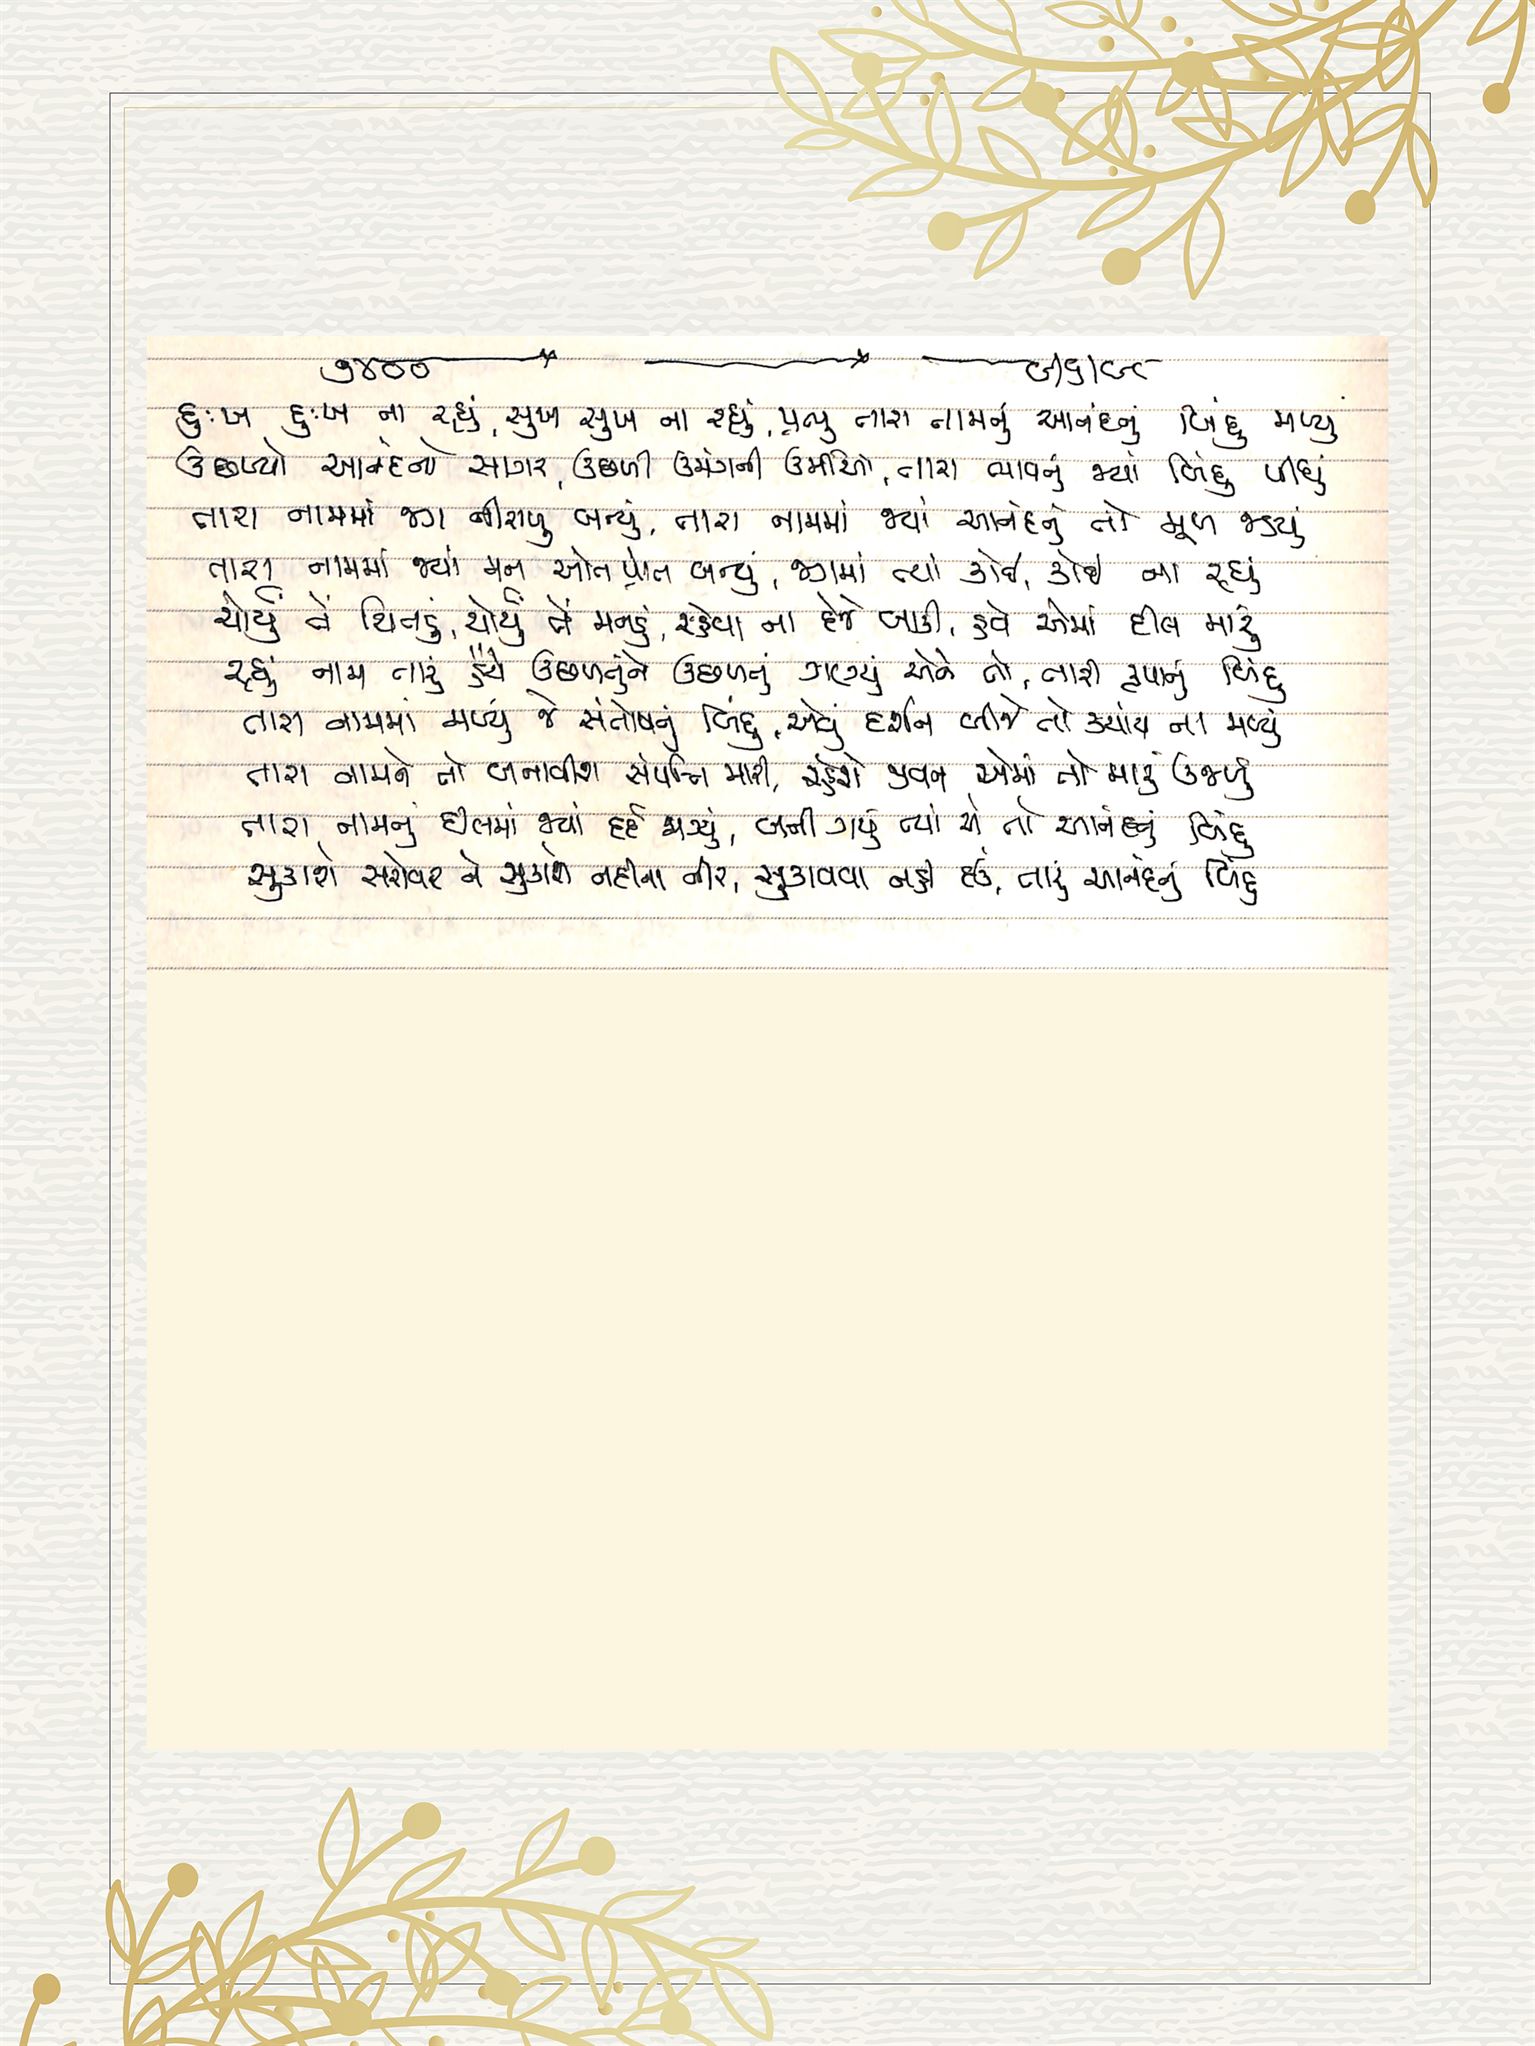 ૭૪૦૦
દુઃખ દુઃખ ના રહ્યું, સુખ સુખ ના રહ્યું, પ્રભુ તારા નામનું આનંદનું બિંદુ મળ્યું
ઉછળ્યો આનંદનો સાગર, ઉછળી ઉમંગની ઉર્મીઓ, તારા ભાવનું જ્યાં બિંદુ પીધું
તારા નામમાં જગ નીરાળુ બન્યું, તારા નામમાં જ્યાં આનંદનું તો મૂળ જડયું
તારા નામમાં જ્યાં મન ઓતપ્રોત બન્યું, જગમાં ત્યાં કોઈ, કોઈ ના રહ્યું
ચોર્યું તેં ચિતડું, ચોર્યું તેં મનડું, રહેવા ના દેજે બાકી, હવે એમાં દીલ મારું
રહ્યું નામ તારું હૈયે ઉછળતુંને ઉછળતું ગણ્યું એને તો, તારી કૃપાનું બિંદુ
તારા નામમાં મળ્યું જે સંતોષનું બિંદુ, એવું દર્શન બીજે તો ક્યાંય ના મળ્યું
તારા નામને તો બનાવીશ સંપત્તિ મારી, રહેશે જીવન એમાં તો મારું ઉજળું
તારા નામનું દીલમાં જ્યાં દર્દ જાગ્યું, બની ગયું ત્યાં એ તો આનંદનું બિંદુ
સુકાશે સરોવર ને સુકાશે નદીના નીર, સુકાવવા નહી દઉં, તારું આનંદનું બિંદુ